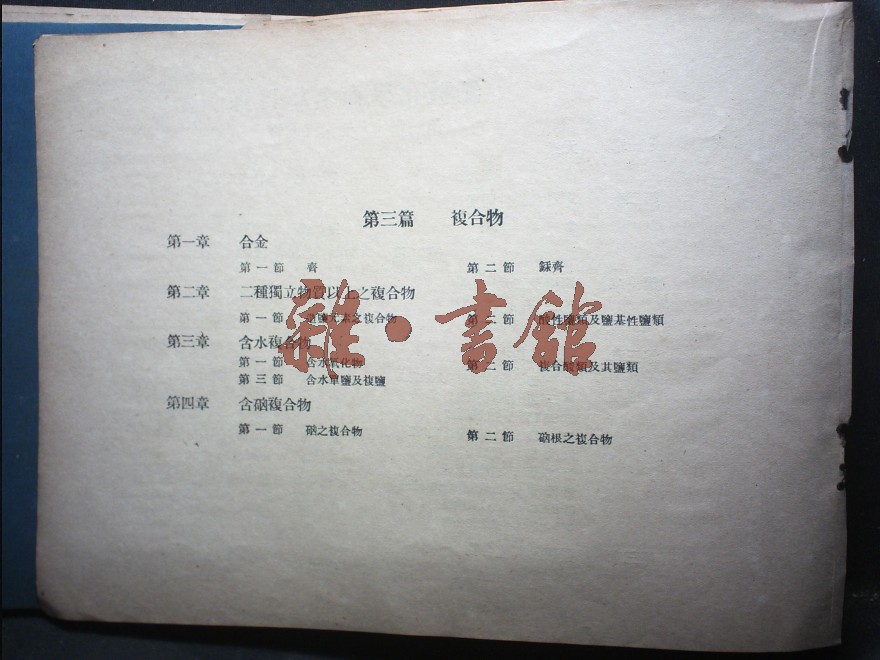 第三篇　複合物
第一章　合金
第一節　齊　第二節　鎵齊
第二章　二種獨立物質以上之複合物
第一節　鹽元素之複合物　第二節　酸性鹽類及鹽基性鹽類
第三章　含水複合物
第一節　含水氧化物　第二節　複合酸類及其鹽類
第三節　含水單鹽及複鹽
第四章　含硇複合物
第一節　硇之複合物　第二節　硇根之複合物
雜·書館